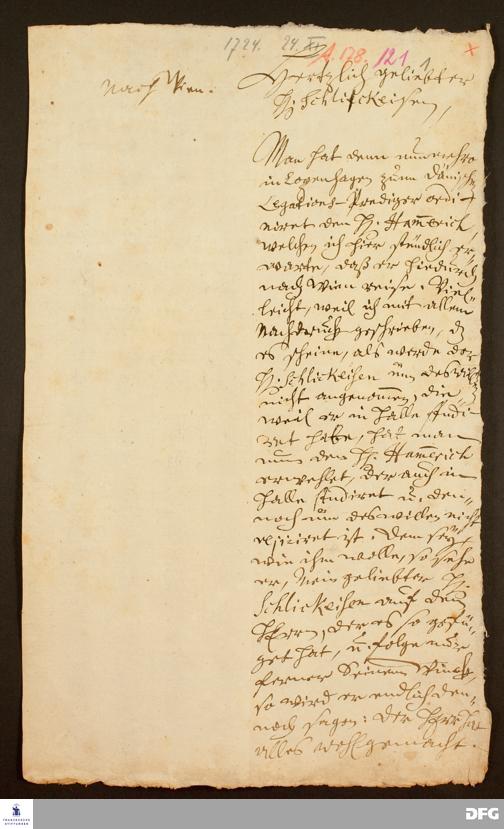 1724. 24. XI
A. 178. 121 1
nach Wien.
Hertzlich geliebter
H. Schlickeisen,
Man hat denn nunmehro
in Copenhagen zum Dänisch
Legations-Prediger ordi-
niret den H. Hamerich,
welchen ich hier stündlich er-
warte, daß er hiedurch
nach Wien reise. Viel-
leicht, weil ich mit allem
Nachdruck geschrieben, dz
es scheine, als werde der
H. Schlickeisen um deswillen
nicht angenommen, die-
weil er in Halle studi-
ret habe, hat man
nun den H. Hamerich
erwehlet, der auch in
Halle studiret u. den-
noch um deswillen nicht
rejiciret ist. Dem sey
wie ihm wolle, so sehe
er, Mein geliebter H.
Schlickeisen auf den
HErrn, der es so gefü-
get hat, u. folge nur
ferner Seinem Winck,
so wird er endlich den-
noch sagen: Der HErr hat
alles wohl gemacht.
FRANCKESCHE STIFTUNGEN
DFG